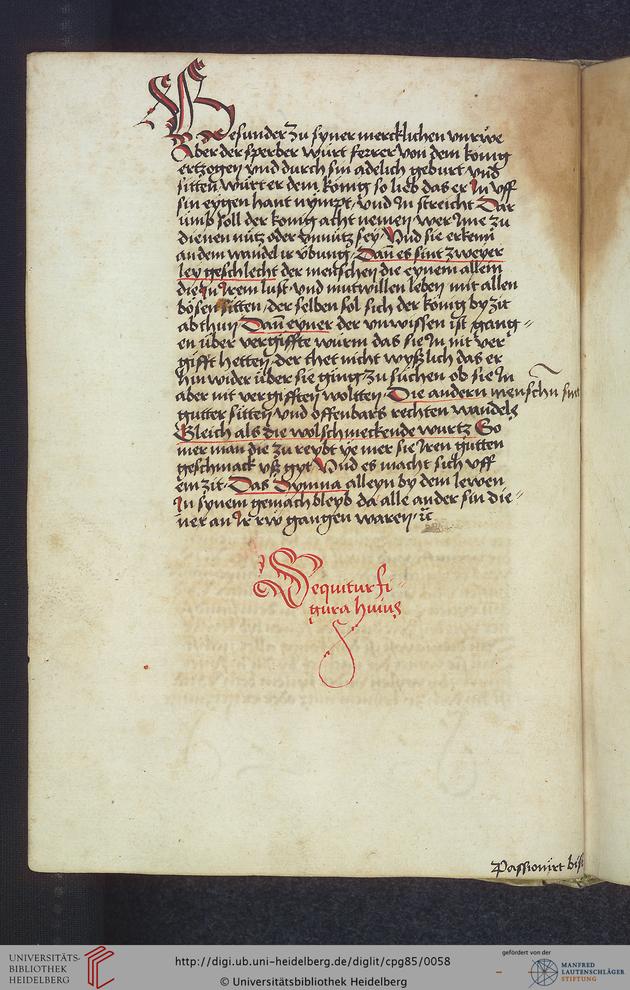 Besunder zu syner mercklichen vnrůe
Aber der sperber würt ferrer von dem konig
ertzogen vnd durch sin adelich geburt vnd
sitten würt er dem konig so lieb das er In vff
sin eygen hant nympt, vnd In streicht Dar
umb soll der konig acht nemen wer Ime zu
dienen nütz oder vnnütz sey, Vnd sie erkenn
an dem wandel ir übung, Dan̄ es sint zweyer
ley geschlecht der mentschen die eynem allein
die In Irem lust, vnd mutwillen leben mit allen
bösen sitten, der selben sol sich der konig by zit
abthun, Dan̄ eyner der vnwissen ist gang=
en über vergiffte würm das sie In nit ver
gifft hetten, der thet nicht wyßlich das er
hinwider über sie ging, zu suchen ob sie In
aber nit vergifften woltten, Die andern menschn sint
gutter sitten vnd offenbars rechten wandels
Gleich als die wolschmeckende wurtz So
mer man die zu reybt ye mer sie Iren gutten
geschmack vß gyt Vnd es macht sich vff
ein zit, Das Dymna alleyn by dem lewen
In synem gemach bleyb da alle ander sin die=
ner an Ir rw gangen waren, ꝛc
Sequitur fi=
gura huius
Passionirt bist
UNIVERSITÄTS-
BIBLIOTHEK
HEIDELBERG
http://digi.ub.uni-heidelberg.de/diglit/cpg85/0058
© Universitätsbibliothek Heidelberg
gefördert von der
MANFRED
LAUTENSCHLÄGER
STIFTUNG